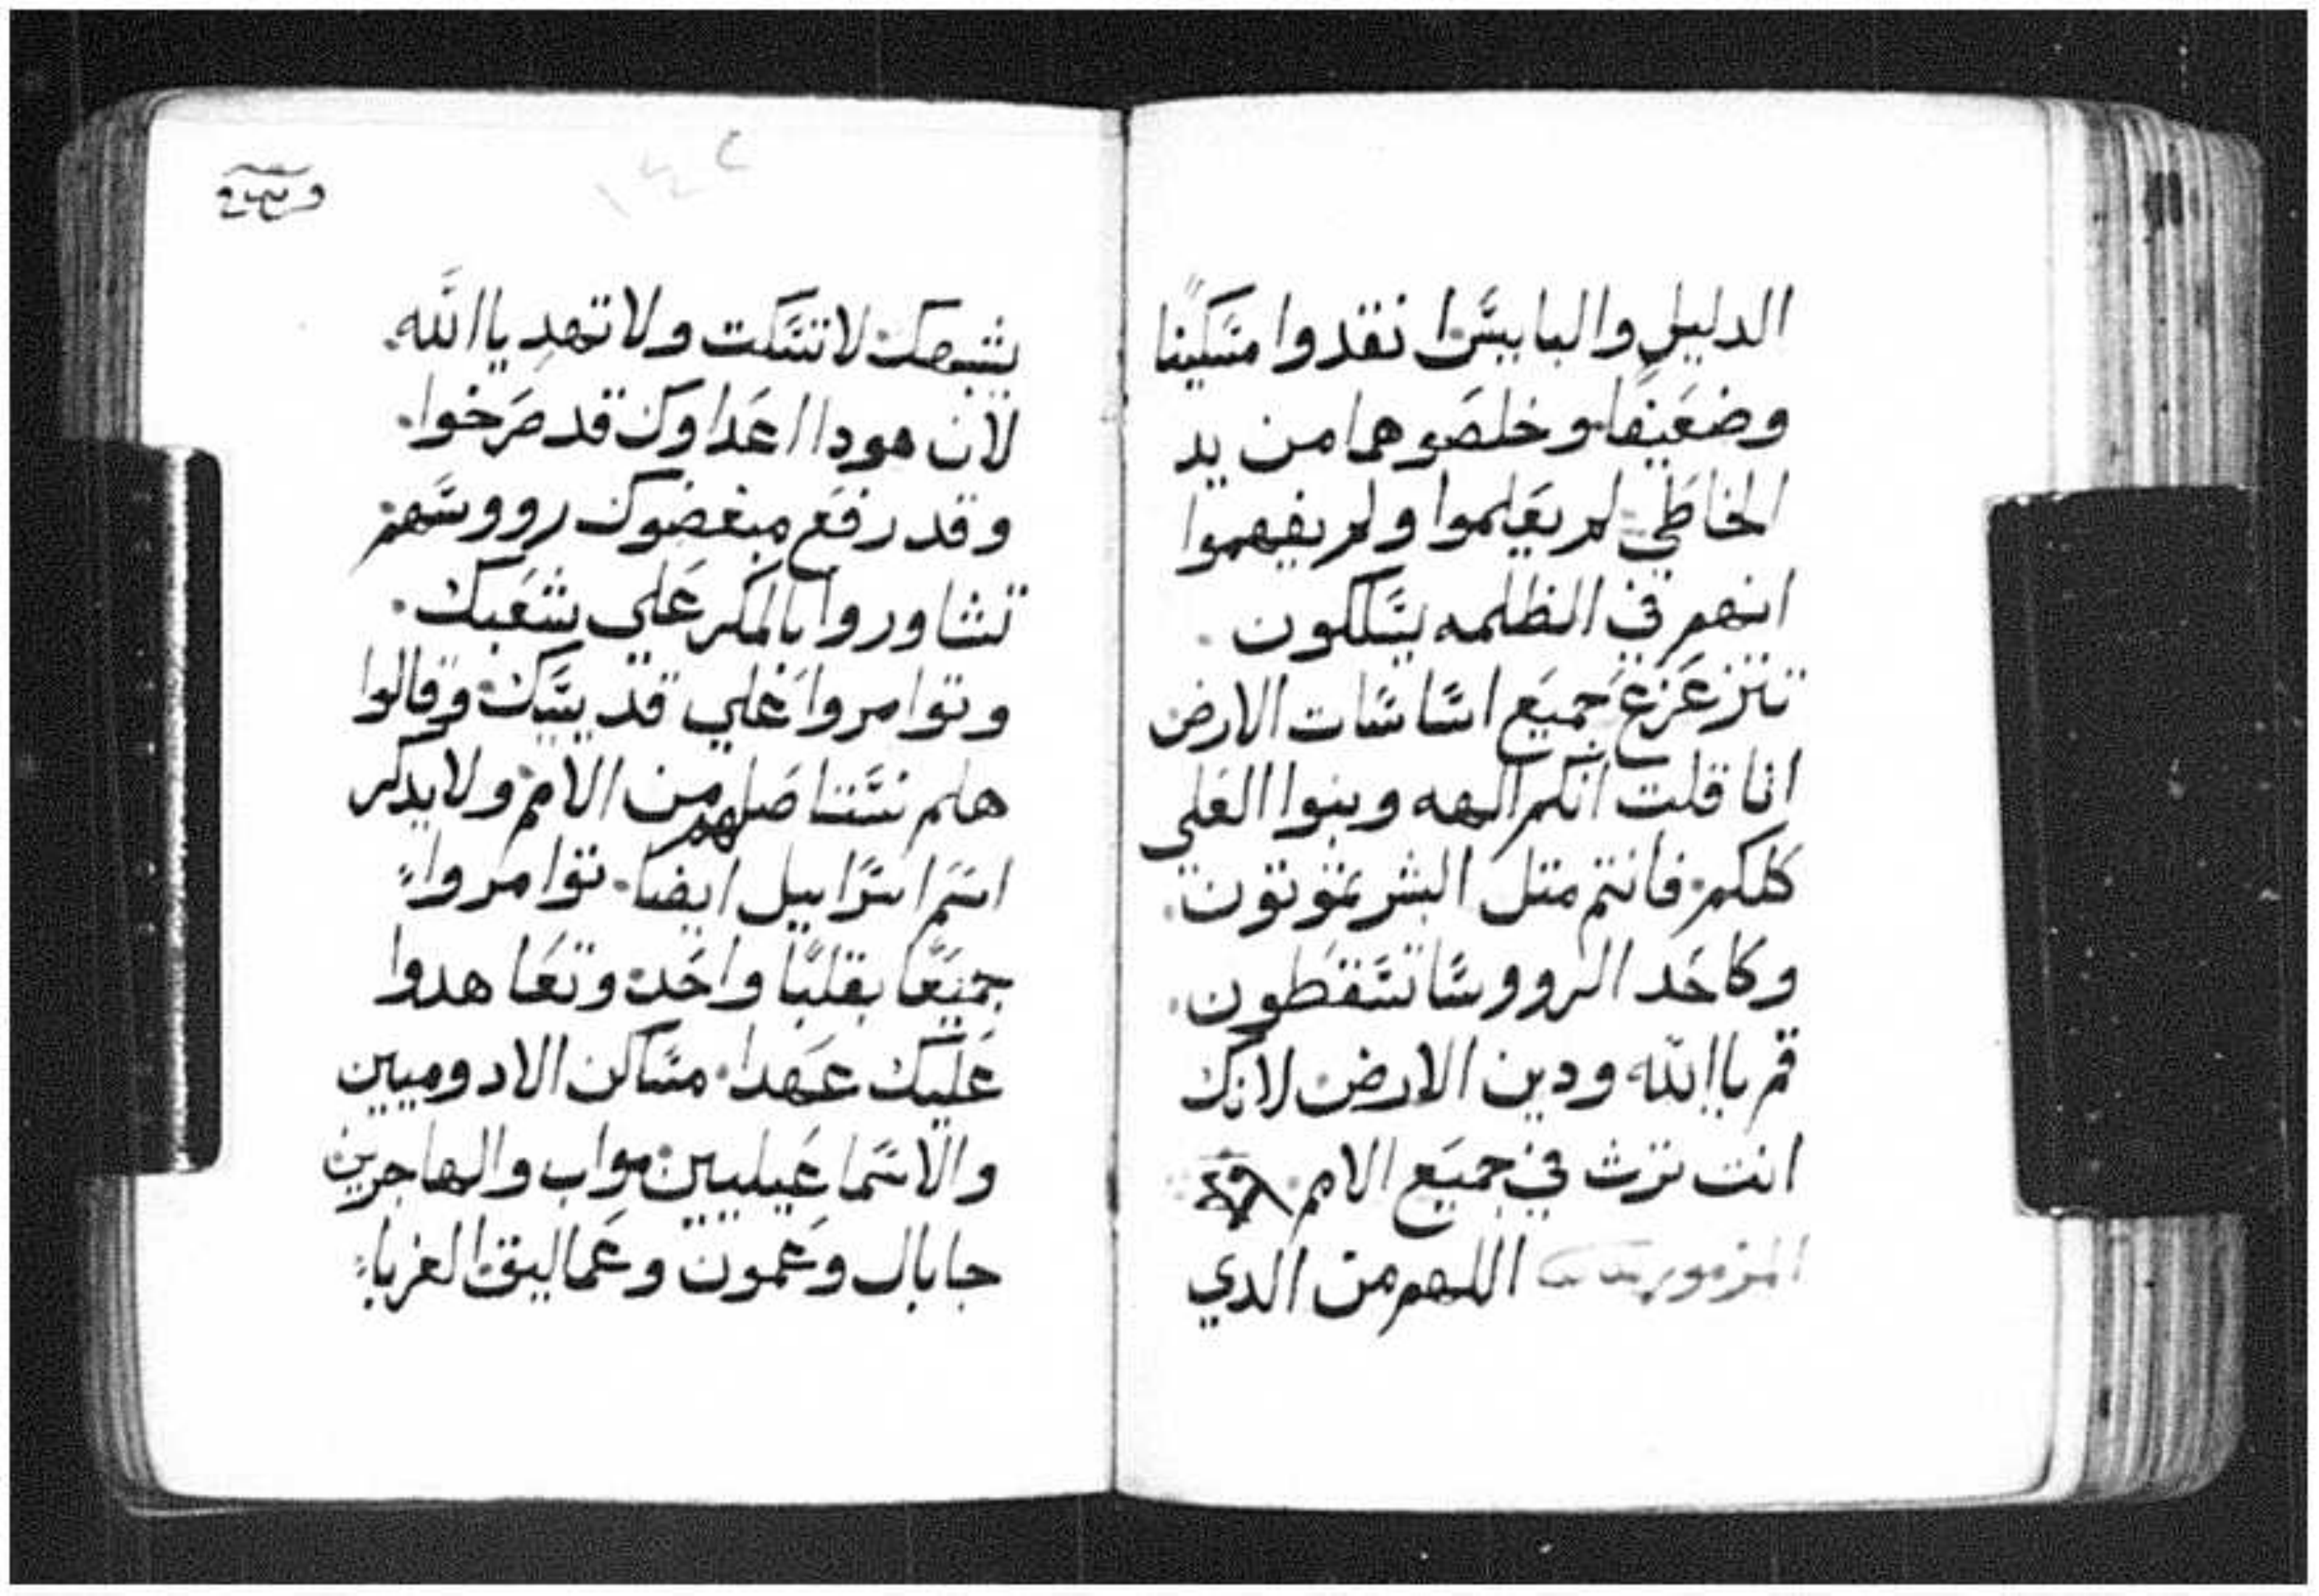 الدليل والبايس انقدوا مسكينا
وضعيفا وخلصوهما من يد
الخاطي لم يعلموا ولم يفهموا
انهم في الظلمه يسلكون
تتزعزع جميع اساسات الارض
انا قلت انكم الهه وبنوا العلي
كلكم فانتم متل البشر تموتون
وكاحد الرووسا تسقطون
قم ياالله ودين الارض لانك
انت ترث في جميع الامم
المزمور اللهم من الدي
١٤٢
يشبهك لا تسكت ولا تهد ياالله
لان هودا اعداوك قد صرخوا
وقد رفع مبغضوك رووسهم
تشاوروا بالمكر علي شعبك
وتوامروا علي قديسيك وقالوا
هلم نستاصلهم من الامم ولا يدكر
اسم اسراييل ايضا توامروا
جميعا بقلبا واحد وتعاهدوا
عليك عهدا مساكن الادوميين
والاسماعيليين مواب والهاجرين
جابال وعمون وعماليق الغربا